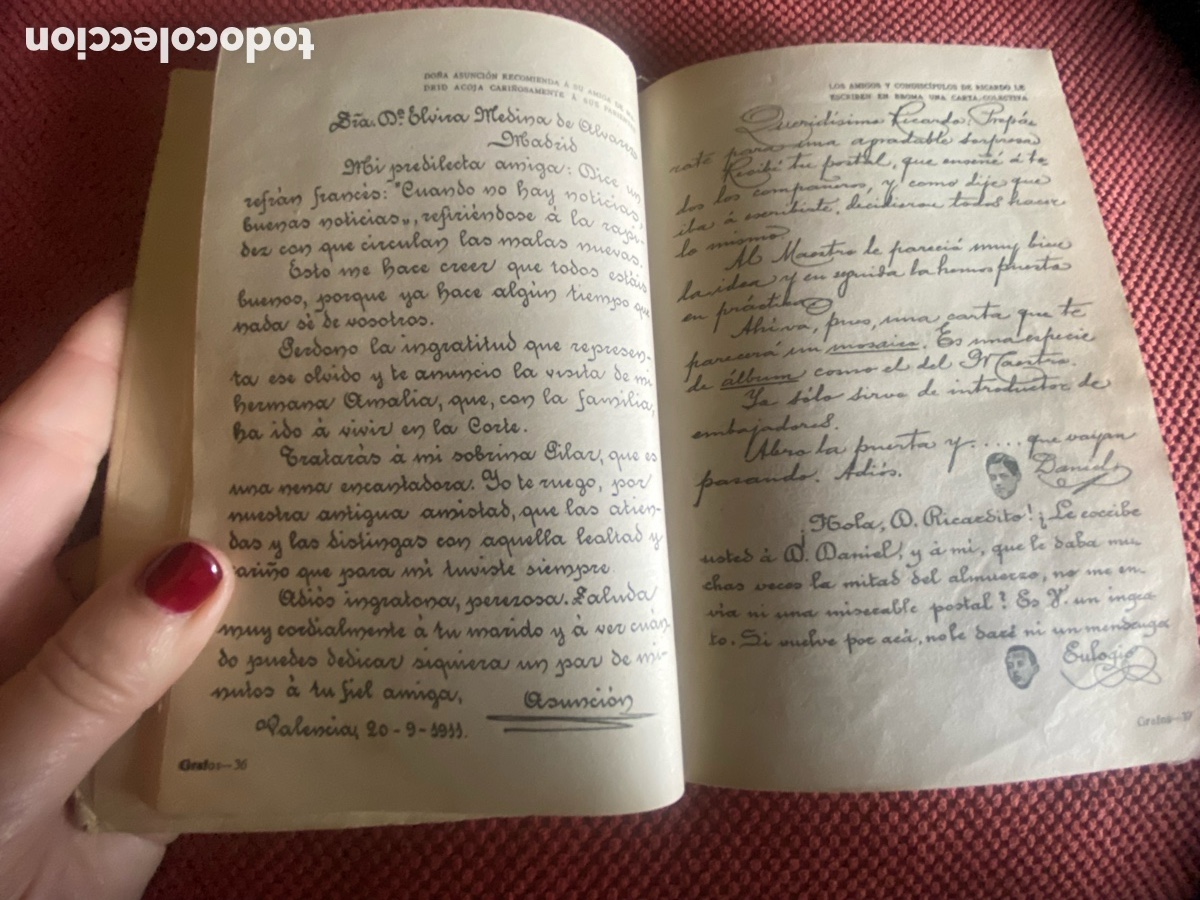 todocoleccion
DOÑA ASUNCIÓN RECOMIENDA Á SU AMIGA DE MA-
DRID ACOJA CARIÑOSAMENTE Á SUS PARIENTES
Sra. Dª Elvira Medina de Alvarez
Madrid
Mi predilecta amiga: Dice un
refrán francés: "Cuando no hay noticias,
buenas noticias", refiriéndose á la rapi-
dez con que circulan las malas nuevas.
Esto me hace creer que todos estáis
buenos, porque ya hace algún tiempo que
nada sé de vosotros.
Perdono la ingratitud que represen-
ta ese olvido y te anuncio la visita de mi
hermana Amalia, que, con la familia,
ha ido á vivir en la Corte.
Tratarás á mi sobrina Pilar, que es
una nena encantadora. Yo te ruego, por
nuestra antigua amistad, que las atien-
das y las distingas con aquella lealtad y
cariño que para mi tuviste siempre.
Adiós ingratona, perezosa. Saluda
muy cordialmente á tu marido y á ver cuán-
do puedes dedicar siquiera un par de mi-
nutos á tu fiel amiga,
Asunción
Valencia, 20-9-1911.
Grafos—36
LOS AMIGOS Y CONDISCÍPULOS DE RICARDO LE
ESCRIBEN EN BROMA UNA CARTA COLECTIVA
Queridísimo Ricardo: Prepá-
rate para una agradable sorpresa
Recibí tu postal, que enseñé á to
dos los compañeros, y como dije que
iba á escribirte, decidieron todos hacer
lo mismo.
Al Maestro le pareció muy bien
la idea y en seguida la hemos puesto
en práctica
Ahí va, pues, una carta que te
parecerá un mosaico. Es una especie
de álbum como el del Maestro.
Yo sólo sirvo de introductor de
embajadores.
Abro la puerta y..... que vayan
pasando. Adiós.
Daniel
¡Hola, D. Ricardito! ¡Le escribe
usted á D. Daniel, y á mí, que le daba mu
chas veces la mitad del almuerzo, no me en-
via ni una miserable postal? Es V. un ingra-
to. Si vuelve por acá, no le daré ni un mendrugo
Eulogio
Grafos—37